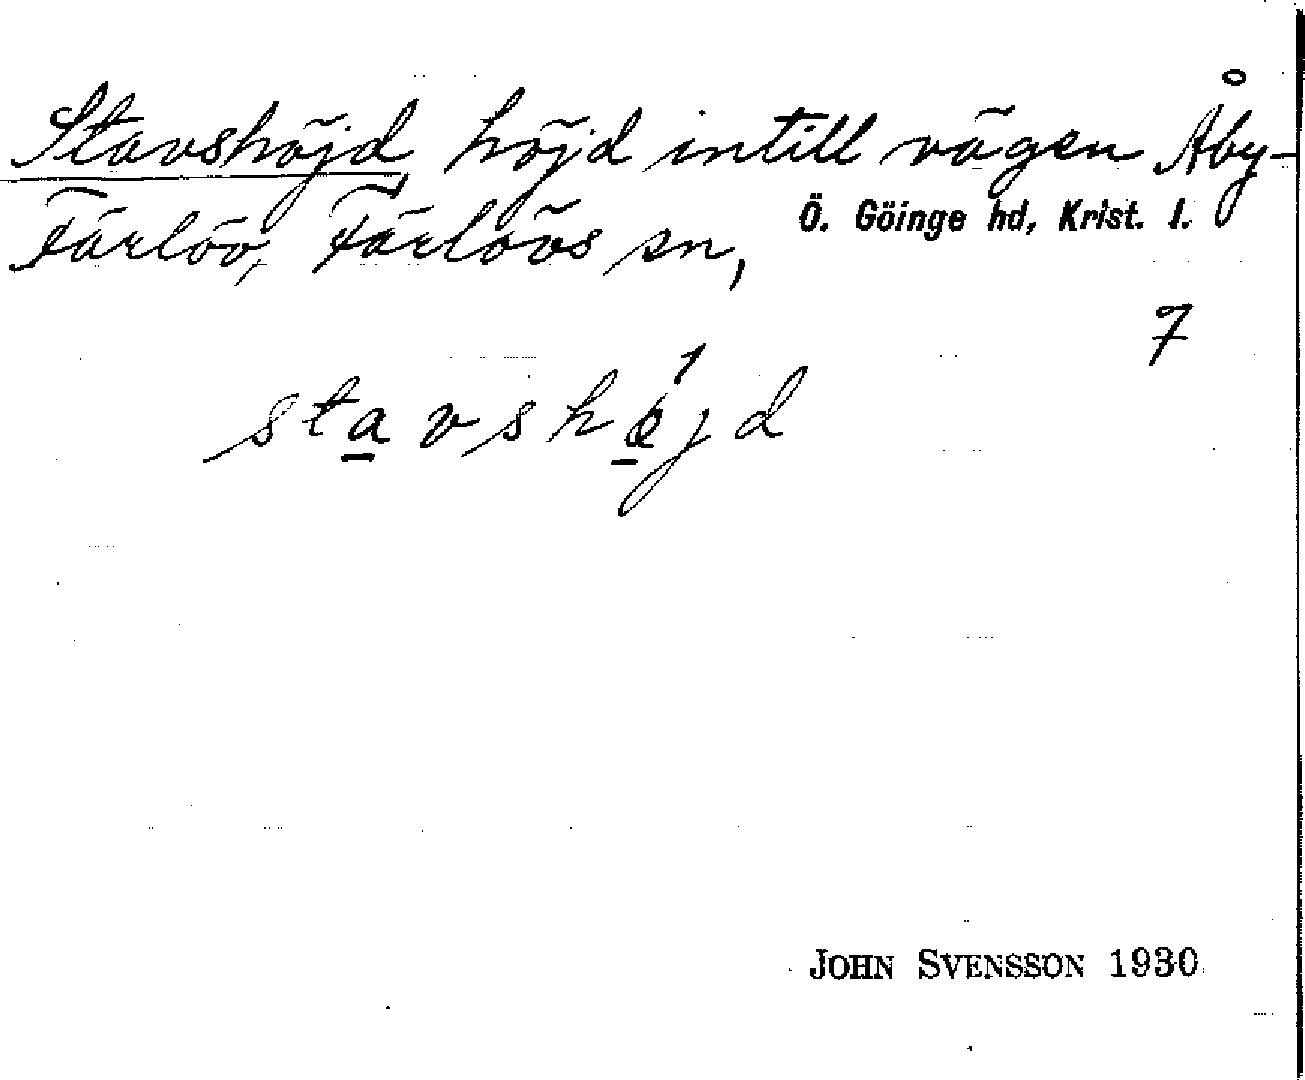 Stavshöjd, höjd intill vägen Åby-
Färlöv, Färlövs sn, Ö. Göinge hd, Krist. l.
7
JOHN SVENSSON 1930